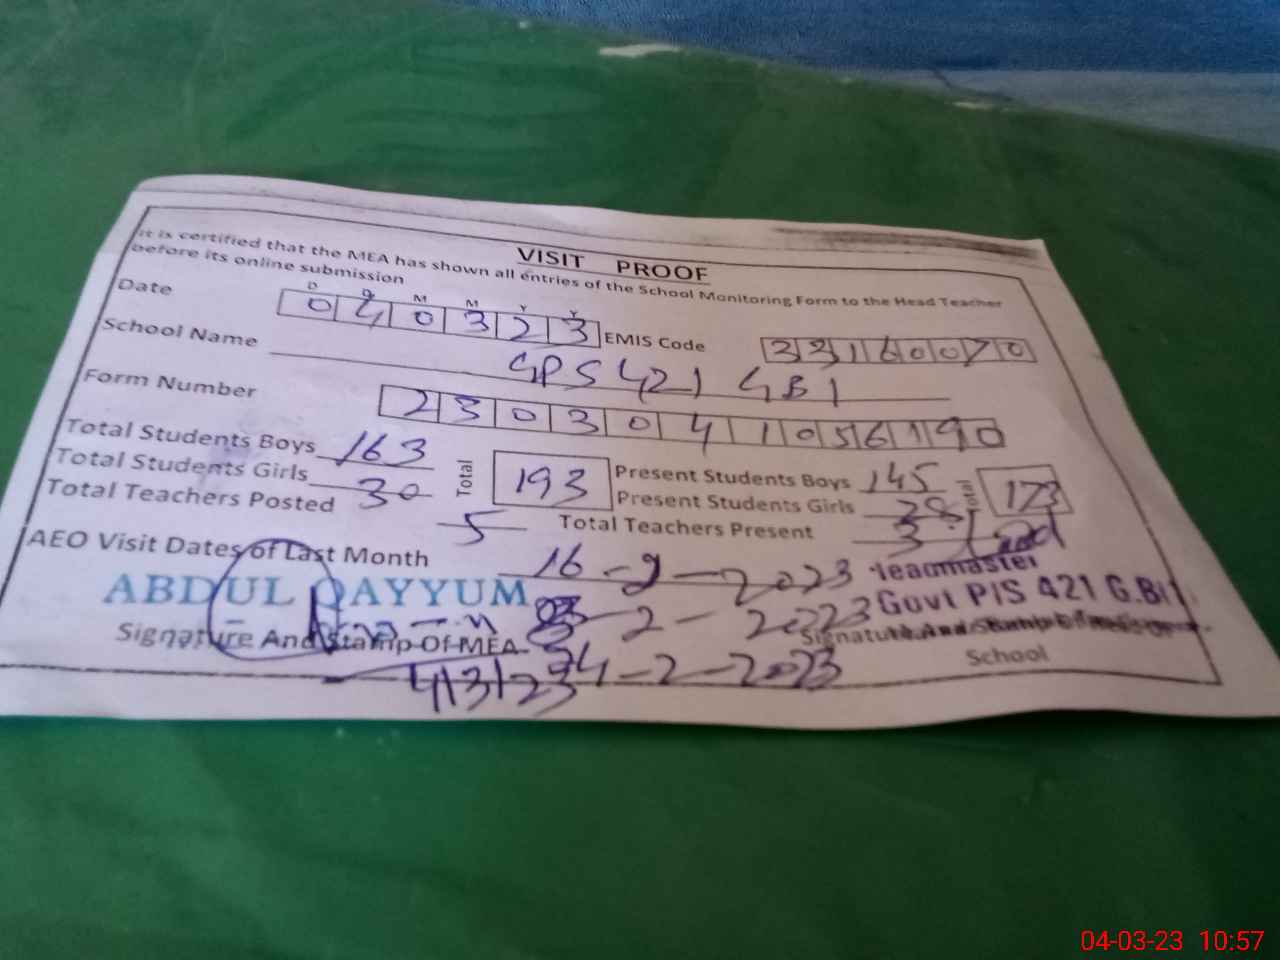 VISIT PROOF
It is certified that the MEA has shown all entries of the School Monitoring Form to the Head Teacher
before its online submission
D D M M Y Y
Date 040323 EMIS Code 33160070
School Name GPS 421 GB 1
Form Number 2303041056190
Total Students Boys 163 Total 193 Present Students Boys 145 Total 173
Total Students Girls 30 Present Students Girls 28
Total Teachers Posted 5 Total Teachers Present 3
AEO Visit Dates of Last Month 16-2-2023
Headmaster
ABDUL QAYYUM
2-2023
Govt P/S 421 G.B
Signature And Stamp Of MEA
School
4/3/23
24-2-2023
04-03-23 10:57